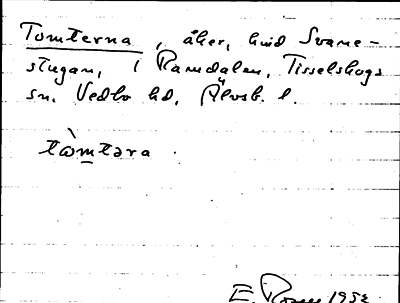 Tomterna, åker, hvid Svane-
stugan, i Ramdalen, Tisselskogs
sn. Vedbo hd, Älvsb. l.
tɷ̀mtəra
E. Rosen 1952